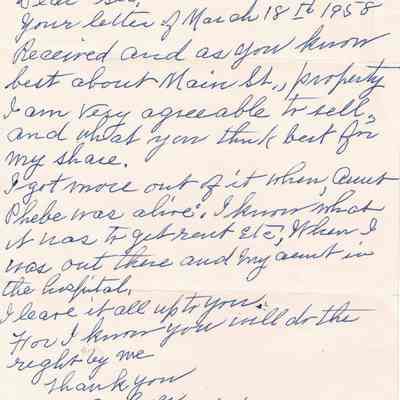 Dear Sir,
Your letter of March 18 th 1958
Received and as you know
best about Main St., property
I am very agreeable to sell,
and what you think best for
my share.
I got more out of it when, Aunt
Phebe was alive. I know what
it was to get rent Etc, When I
was out there and my aunt in
the hospital.
I leave it all up to you.
For I know you will do the
right by me
Thank you